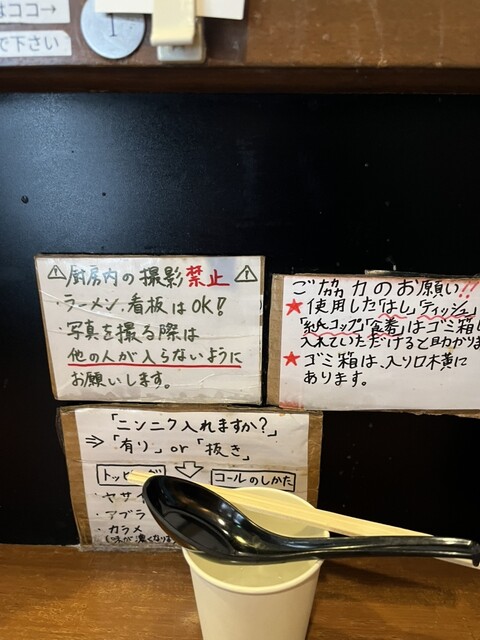 はココ→
で下さい
1
⚠厨房内の撮影禁止⚠
・ラーメン、看板はOK!
・写真を撮る際は
他の人が入らないように
お願いします。
ご協力のお願い!!
★使用した「はし」「ティッシュ」
「紙コップ」「食券」はゴミ箱に
入れていただけると助かりま
★ゴミ箱は、入り口横に
あります。
「ニンニク入れますか?」
⇒「有り」or「抜き」
トッピング
コールのしかた
・ヤサイ
・アブラ
・カラメ